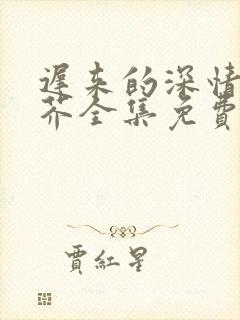 遲来的深情
芥全集免費
賈紅星